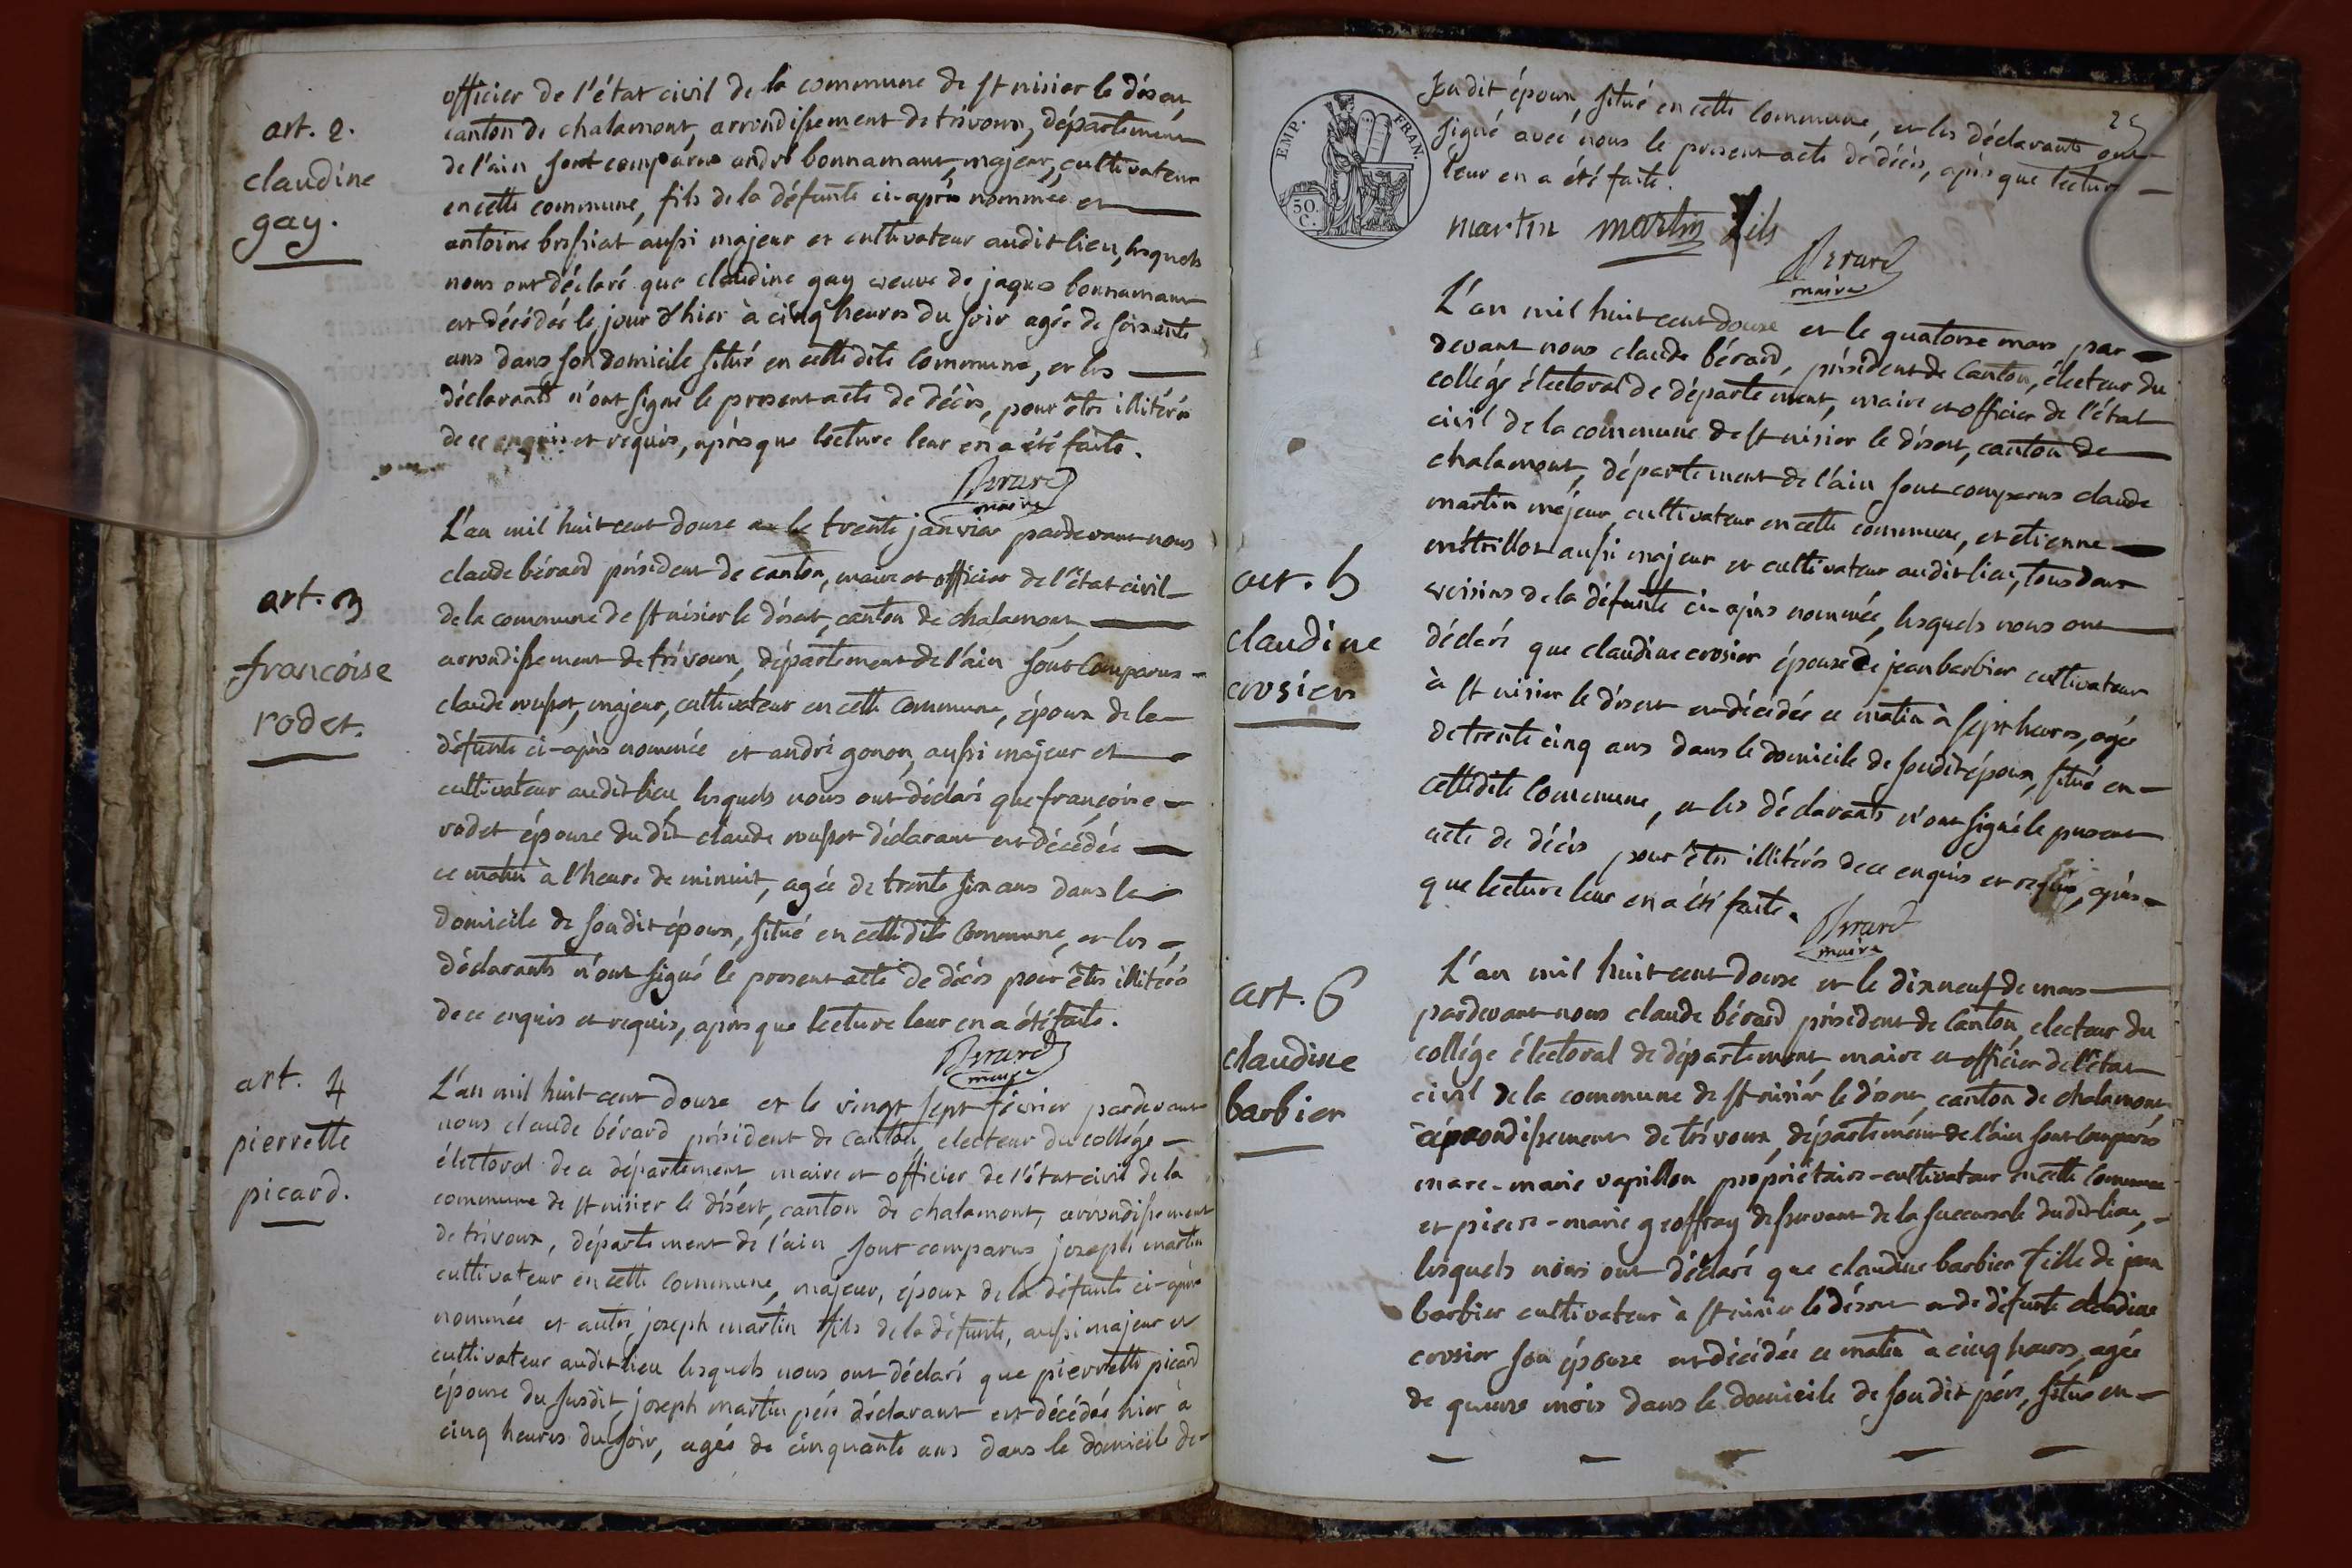 art. 2.
claudine
gay.
officier de l'état civil de la commune de st nisier le désert,
canton de chalamont, arrondissement de trévoux, département
de l'ain sont comparus andré bonnamant, majeur, cultivateur
en cette commune, fils de la défunte ci-après nommée et
antoine bressiat aussi majeur et cultivateur audit lieu, lesquels
nous ont déclaré que claudine gay veuve de jaques bonnamant
est décédée le jour d'hier à cinq heures du soir agée de soixante
ans dans son domicile situé en cette dite commune, et les
déclarants n'ont signé le present acte de décès, pour être illitérés
de ce enquis et requis, après que lecture leur en a été faite.
Berard
maire
art. 3
francoise
rodet.
L'an mil huit cent douze et le trente janvier pardevant nous
claude bérard président de canton, maire et officier de l'état civil
de la commune de st nisier le désert, canton de chalamont,
arrondissement de trévoux, département de l'ain sont comparus
claude musset, majeur, cultivateur en cette commune, époux de la
défunte ci-après nommée et andré gonon, aussi majeur et
cultivateur audit lieu, lesquels nous ont déclaré que françoise
rodet épouse dudit claude musset déclarant est décédée
ce matin à l'heure de minuit, agée de trente six ans dans le
domicile de sondit époux, situé en cette dite commune, et les
déclarants n'ont signé le present acte de décès pour être illitérés
de ce enquis et requis, après que lecture leur en a été faite.
Berard
maire
art. 4
pierrette
picard.
L'an mil huit cent douze et le vingt sept février pardevant
nous claude bérard président de canton, electeur du collége
électoral de ce département, maire et officier de l'état civil de la
commune de st nisier le désert, canton de chalamont, arrondissement
de trévoux, département de l'ain sont comparus joseph martin
cultivateur en cette commune, majeur, époux de la défunte ci-après
nommée et autre joseph martin fils de la défunte, aussi majeur et
cultivateur audit lieu lesquels nous ont déclaré que pierrette picard
épouse du susdit joseph martin père déclarant est décédée hier à
cinq heures du soir, agée de cinquante ans dans le domicile de
25
EMP. FRAN.
50.
C.
sondit époux, situé en cette commune, et les déclarants ont
signé avec nous le present acte de décès, après que lecture
leur en a été faite.
martin martin fils
Berard
maire
art. 5
claudine
crosier
L'an mil huit cent douze et le quatorze mars par
devant nous claude bérard, président de canton, électeur du
collége électoral de département, maire et officier de l'état
civil de la commune de st nisier le désert, canton de
chalamont, département de l'ain sont comparus claude
martin majeur, cultivateur en cette commune, et etienne
métrillot aussi majeur et cultivateur audit lieu, tous deux
voisins de la défunte ci-après nommée, lesquels nous ont
déclaré que claudine crosier épouse de jean barbier cultivateur
à st nisier le désert est décédée ce matin à sept heures, agée
de trente cinq ans dans le domicile de sondit époux, situé en
cette dite commune, et les déclarants n'ont signé le present
acte de décès pour être illitérés de ce enquis et requis, après
que lecture leur en a été faite.
Berard
maire
art. 6
claudine
barbier
L'an mil huit cent douze et le dix neuf de mars
pardevant nous claude bérard président de canton, electeur du
collége électoral de département, maire et officier de l'état
civil de la commune de st nisier le désert, canton de chalamont,
arrondissement de trévoux, département de l'ain sont comparus
marc-marie vapillon propriétaire-cultivateur en cette commune
et pierre-marie geoffray desservant de la succursale dudit lieu,
lesquels nous ont déclaré que claudine barbier fille de jean
barbier cultivateur à st nisier le désert et de défunte claudine
crosier son épouse est décédée ce matin à cinq heures, agée
de quinze mois dans le domicile de sondit père, situé en